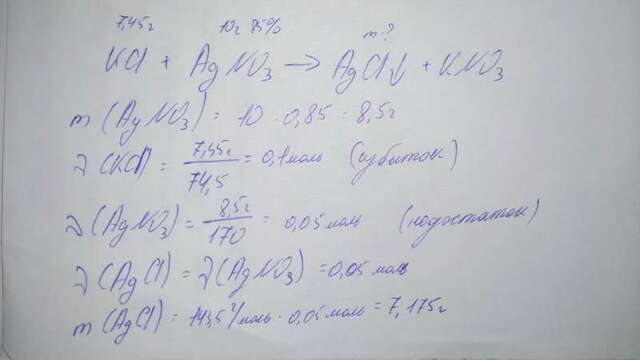 7,45г 10г 85% m-?
KCl + AgNO₃ → AgCl↓ + KNO₃
m (AgNO₃) = 10 · 0,85 = 8,5г
ν (KCl) = 7,45г/74,5 = 0,1 моль (избыток)
ν (AgNO₃) = 8,5г/170 = 0,05 моль (недостаток)
ν (AgCl) = ν (AgNO₃) = 0,05 моль
m (AgCl) = 143,5 г/моль · 0,05 моль = 7,175г